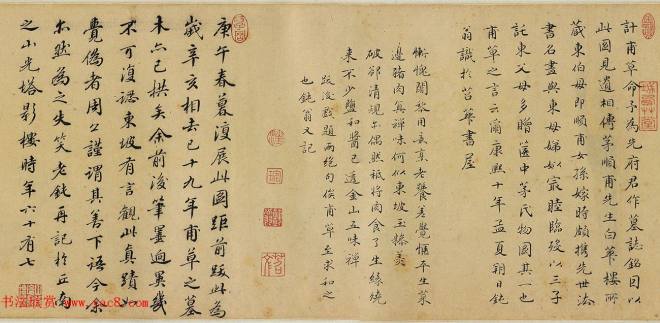 計甫草命予為先府君作墓誌銘因以
此圖見遺相傳茅順甫先生白華樓所
藏東伯母即順甫女孫嫁時頗攜先世法
書名畫與東母娣姒寂睦臨歿以三子
託東父母多贈篋中茅氏物圖其一也
甫草之言云爾康熙十年孟夏朔日鈍
翁識於苕華書屋
慚愧闍黎用意烹老饕差覺愜平生菜
邊豬肉真禪味何似東坡玉糝羹
破却清規亦偶然祗將肉食了生緣燒
來不少鹽和醬已遣金山五味禪
跋後戲題兩絕句俟甫草至求和之
也鈍翁又記
庚午春暮復展此圖距前跋此為
歲辛亥相去已十九年甫草之墓
木亦已拱矣余前後筆墨迥異幾
不可復認東坡有言觀此真蹟以
覺偽者周公謹謂其善下語今余
亦然為之失笑老鈍再記於丘南
之山光塔影樓時年六十有七
书法欣赏
www.yac8.com